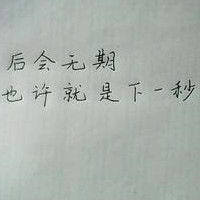 后会无期
也许就是下一秒